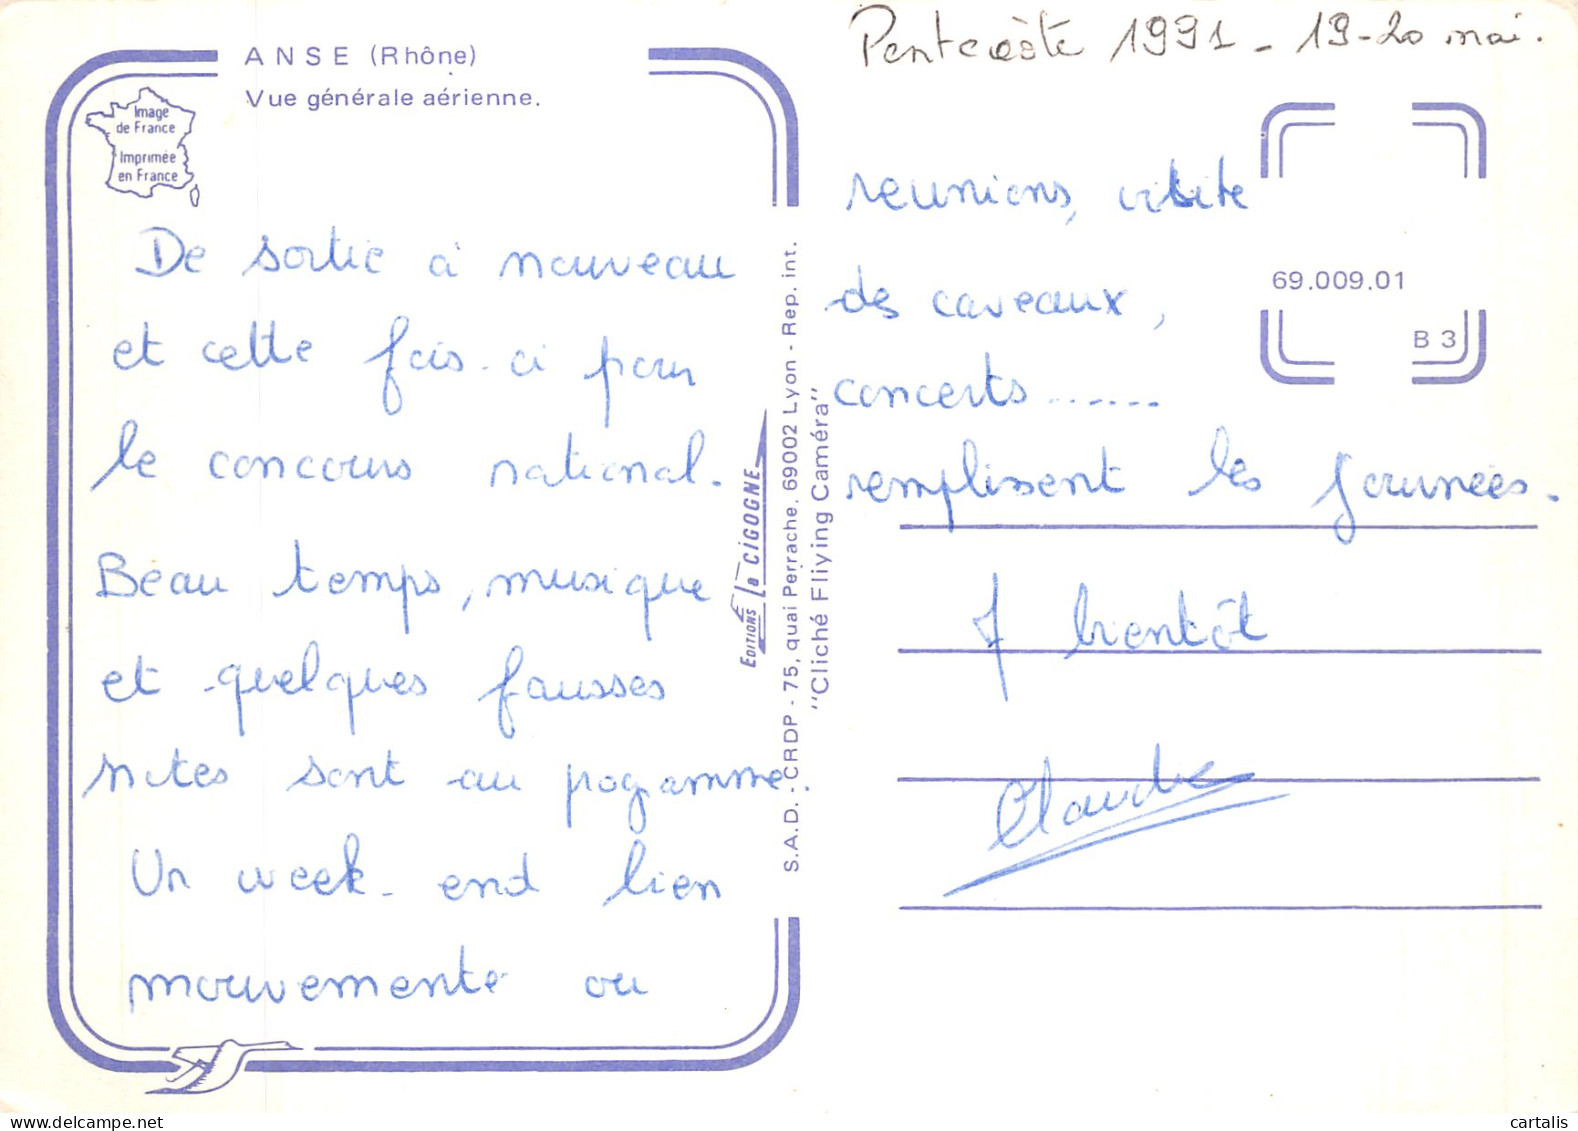 ANSE (Rhône)
Vue générale aérienne.
Image
de France
Imprimée
en France
De sortie à nouveau
et cette fois-ci pour
le concours national.
Beau temps, musique
et quelques fausses
notes sont au pogramme.
Un week-end bien
mouvementé ou
EDITIONS La CIGOGNE
S.A.D. - CRDP - 75, quai Perrache, 69002 Lyon - Rep. int.
"Cliché Fliying Caméra"
Pentecôte 1991 - 19-20 mai.
69.009.01
B 3
reunions, visite
des caveaux,
concerts......
remplissent les journées.
A bientôt
Claude
cartalis